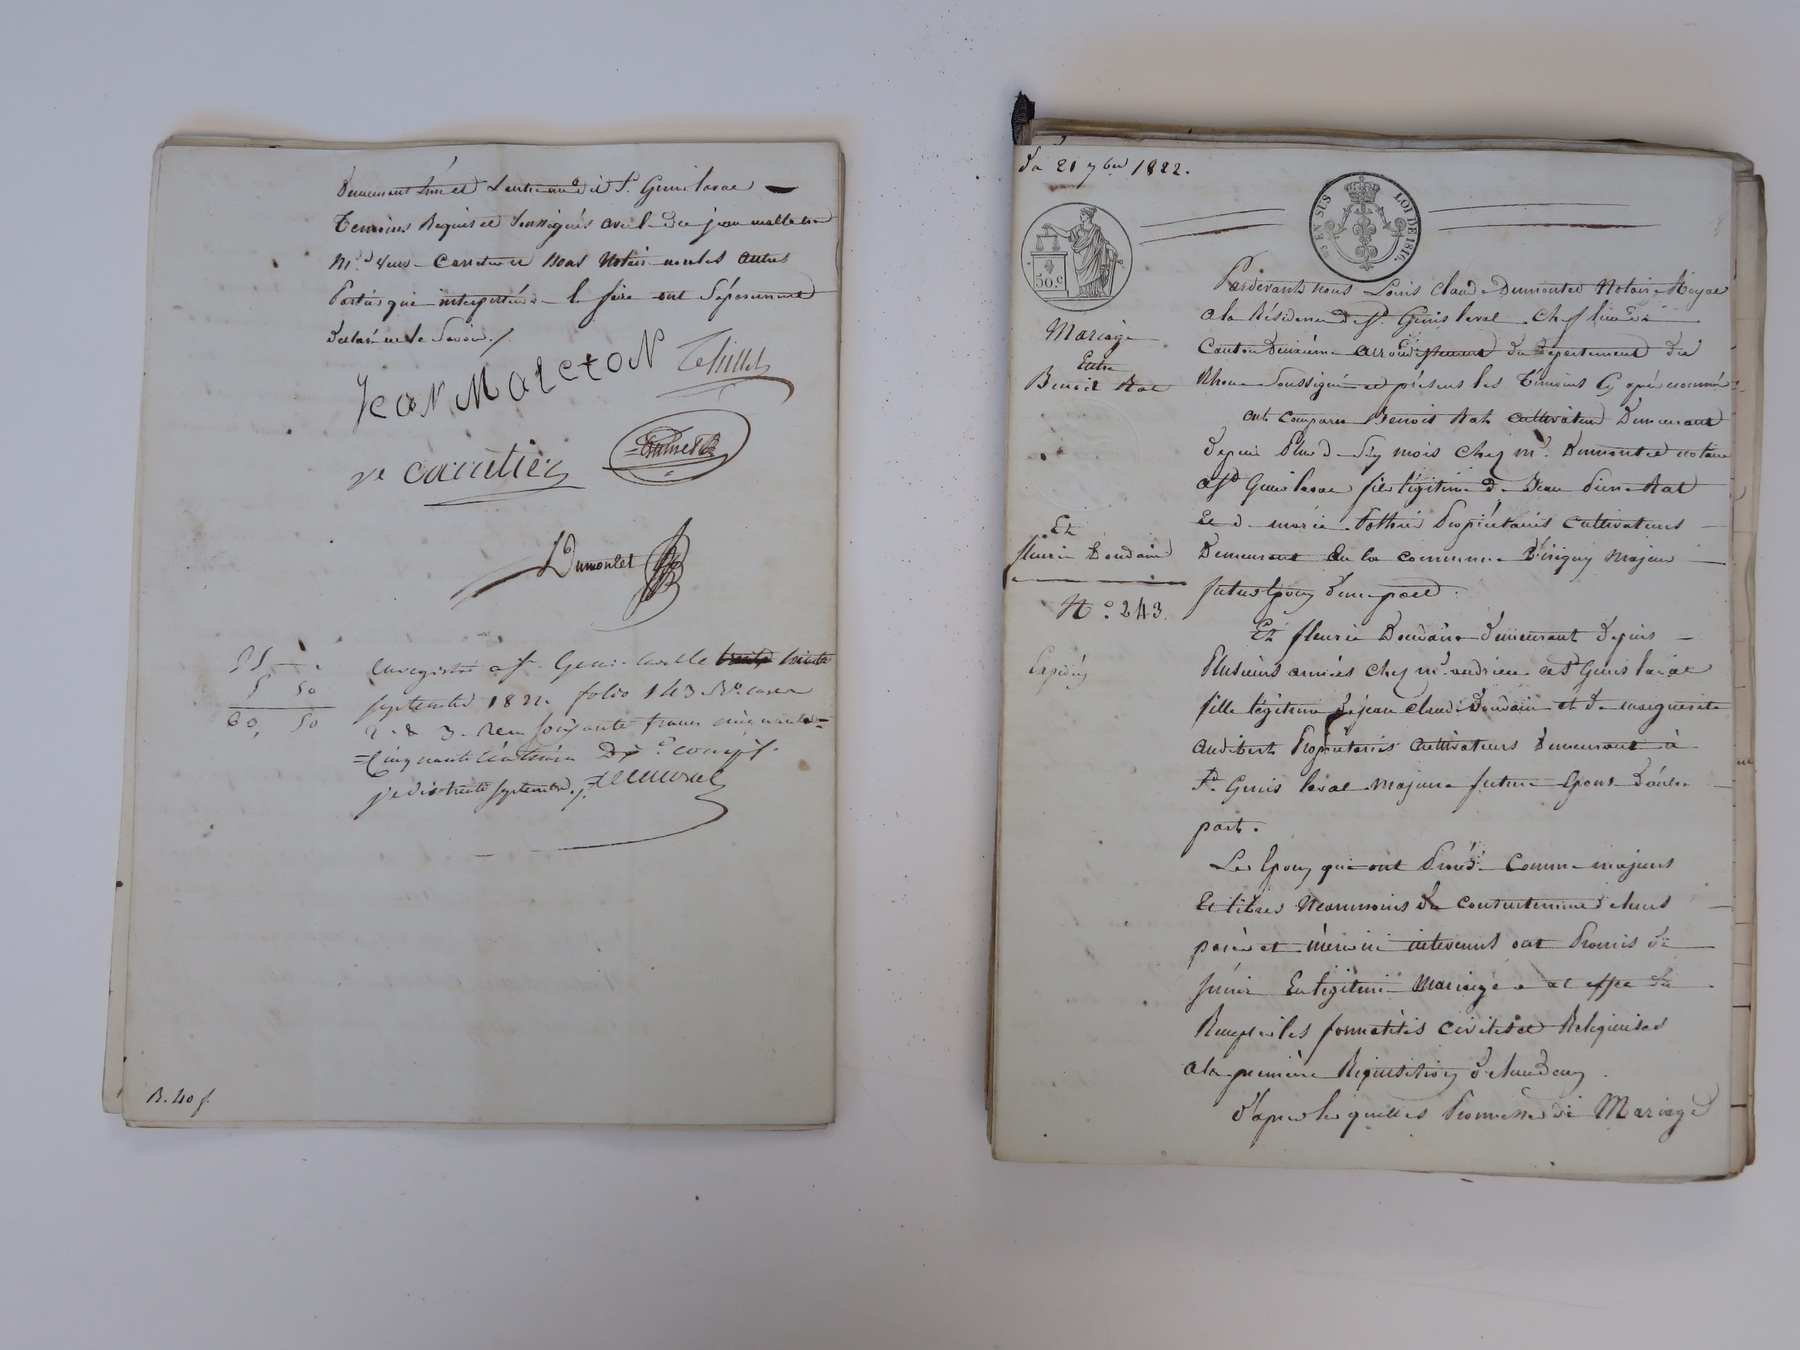 Demeurant l'un et l'autre audit St. Genis laval
Temoins Requis et Soussignés avec le dit jean malleton
Md. Veuve Cavetier et Nous Notaire non les autres
Parties qui interpellées de le faire ont Séparement
Déclaré ne le Savoir ./.
JeaN MaletoN
ve cavetier
Dumontet
51 —
9 50
60, 50
enregistré a St. Genis laval le trente
septembre 1822. folio 143 Ro. cases
2 & 3. Reçu soixante francs cinquante
= cinquante centimes Dxe. compris.
je dis trente septembre ./.
B. 40 f.
Du 21 7bre 1822.
EN SUS
LOI DE 1816.
50.c
Mariage
Entre
Benoit Rat
Et
fleurie Doudain
N°. 243.
Expédié
Pardevant nous Louis Claude Dumontet Notaire Royal
a la Résidence de St. Genis laval Chef lieu de
Canton Deuxième arrondissement du département du
Rhone Soussigné et présens les Témoins Cy après nommés
ont comparu Benoit Rat cultivateur Demeurant
Depuis Plus de Six mois chez mr. Dumontet notaire
a St Genis laval fils légitime de Jean Pierre Rat
Et de marie Pothier Propriétaires cultivateurs
Demeurant en la commune D'irigny Majeur
futur Epoux d'une part.
Et fleurie Doudain demeurant depuis
Plusieurs années chez mr. andrieu a St Genis laval
fille légitime de jean claude Doudain et de marguerite
audibert Propriétaires cultivateurs Demeurant à
St. Genis laval majeure future Epouse D'autre
part.
Les Epoux qui ont Procédé comme majeurs
Et libres Néanmoins du consentement de leurs
pères et mères ici intervenus ont Promis de
s'unir En légitime Mariage a cet effet d'en
Remplir les formalités civiles et Religieuses
a la première Réquisition de l'un d'eux.
d'après lesquelles Promesses de Mariage